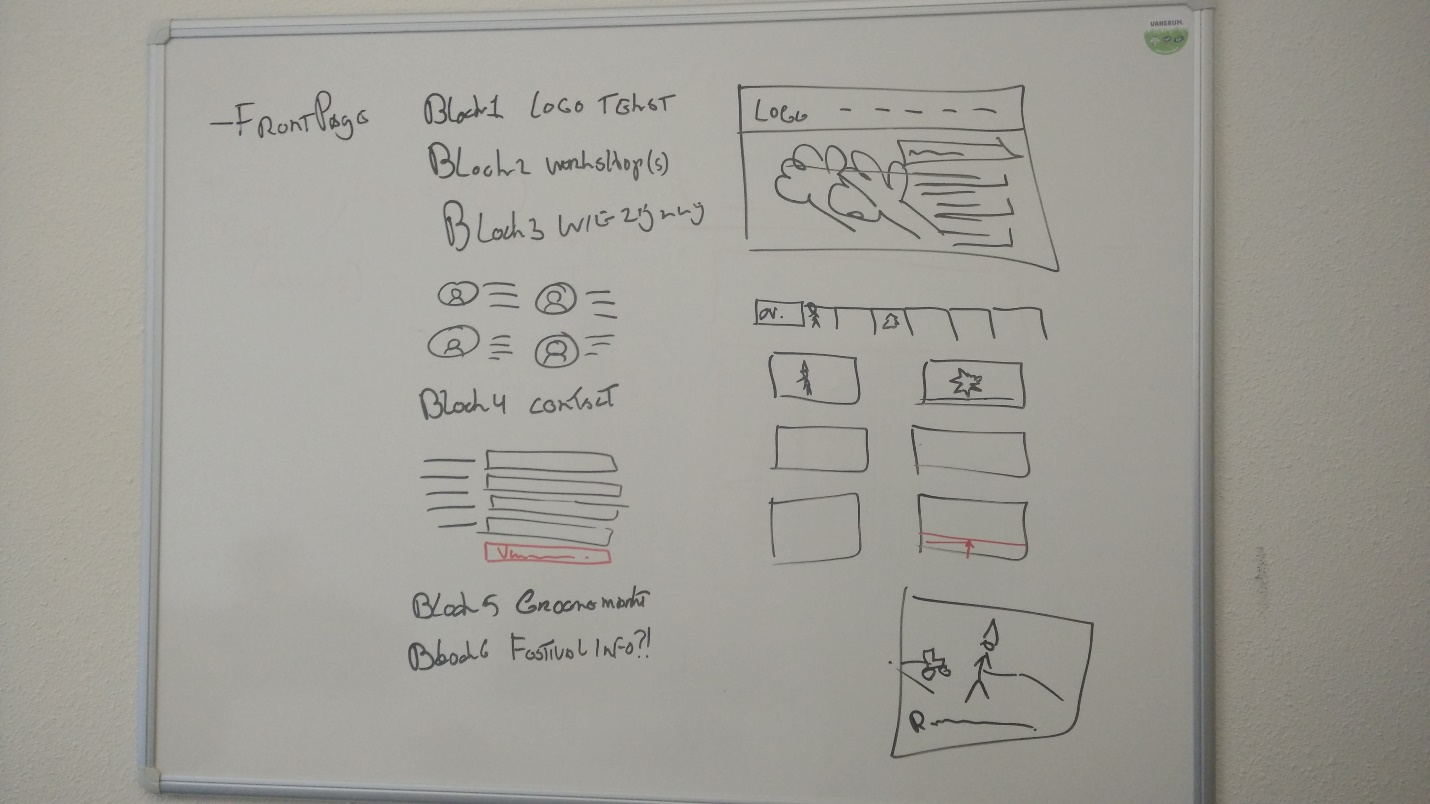 - FRONTPage
Block1 LOGO TEKST
BLock2 workshop(s)
BLock3 WIE zijn wij
Block4 contact
Block5 Groenemarkt
Block6 FESTIVAL INFO?!
LOGO
ov.
R
VANERUM